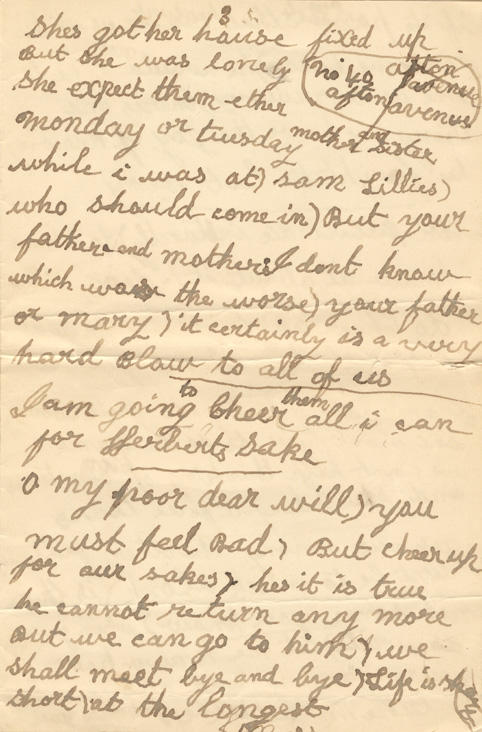 3
shes got her house fixed up
But she was lonely
no 40 afton avenue
afton avenue
she expect them ether
monday or tuesday mother and sister
while i was at) sam Lillies)
who should come in) But your
father and mother I dont know
which was the worse) your father
or mary) it certainly is a very
hard Blow to all of us
I am going to cheer them all i can
for Herberts sake
O my poor dear will) you
must feel Bad) But cheer up
for our sakes) hes it is true
he cannot return any more
But we can go to him) we
shall meet bye and bye) Life is short
short) at the longest